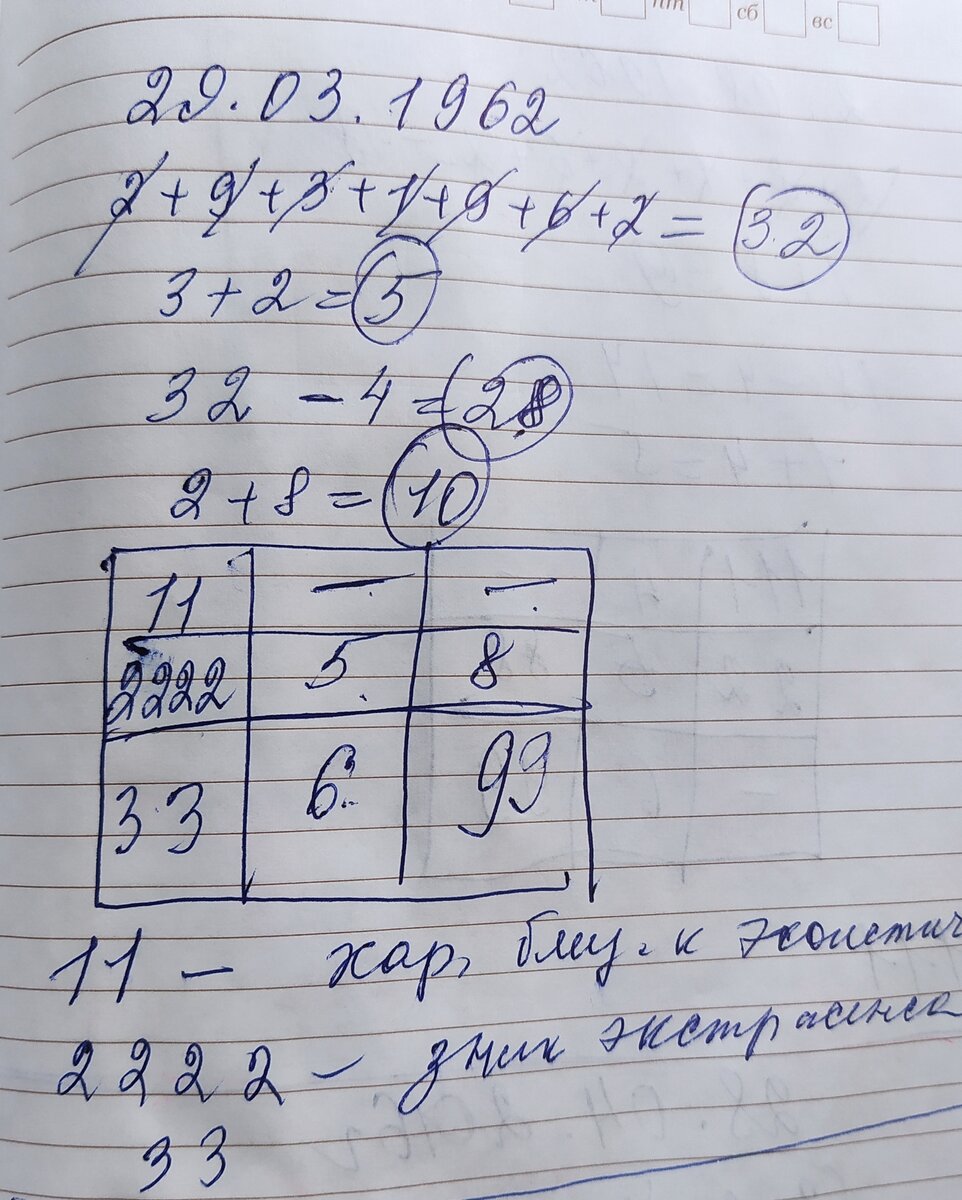 пт сб вс
29.03.1962
2+9+3+1+9+6+2=32
3+2=5
32-4=28
2+8=10
11 — —
2222 5 8
33 6 99
11 — хар, близ. к эгоистич
2222 — знак экстрасенса
33